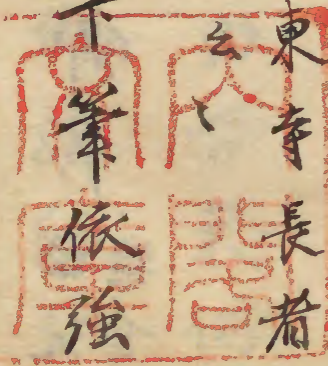 東寺長者
云〻
下筆依強